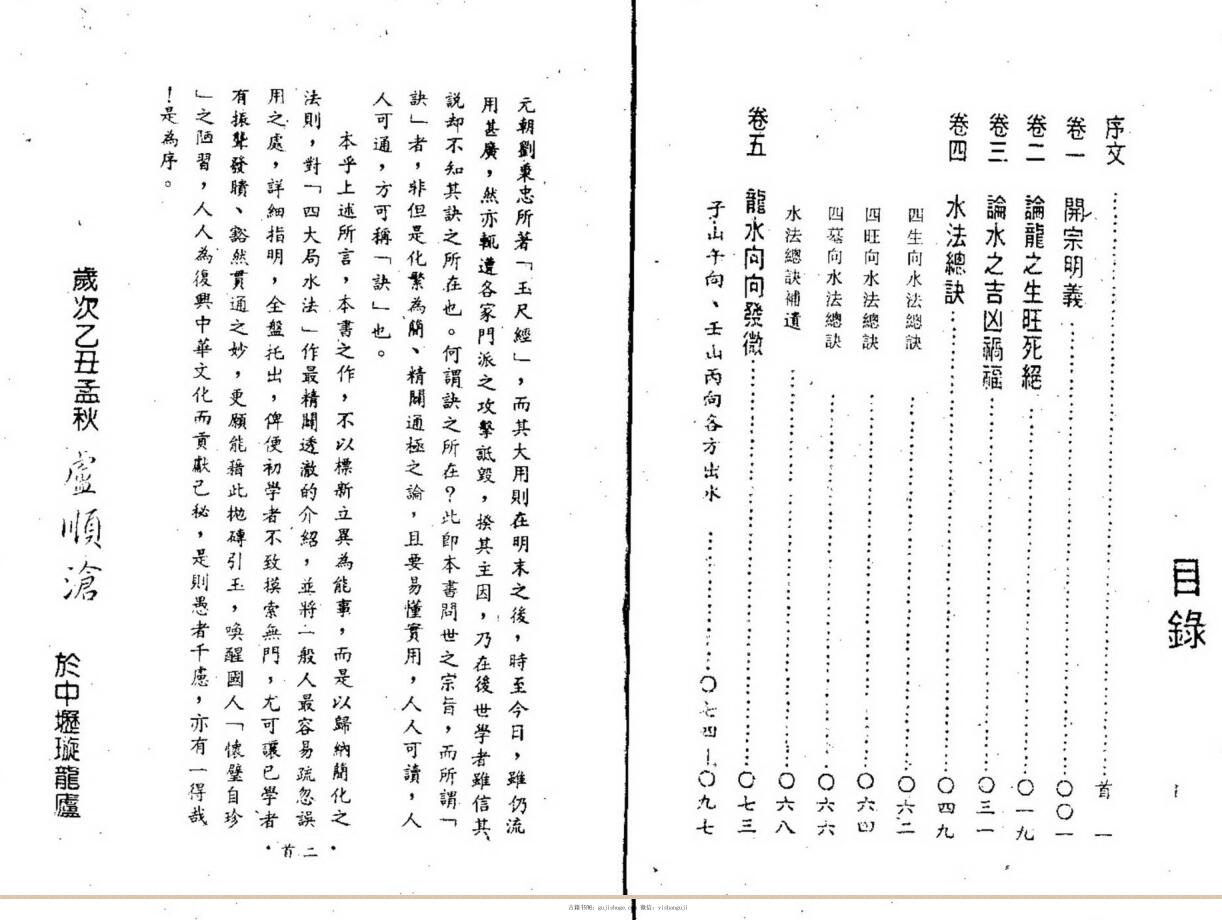 目錄
序文⋯⋯首一
卷一 開宗明義⋯⋯〇〇一
卷二 論龍之生旺死絕⋯⋯〇一九
卷三 論水之吉凶禍福⋯⋯〇三一
卷四 水法總訣⋯⋯〇四九
四生向水法總訣⋯⋯〇六二
四旺向水法總訣⋯⋯〇六四
四墓向水法總訣⋯⋯〇六六
水法總訣補遺⋯⋯〇六八
卷五 龍水向向發微⋯⋯〇七三
子山午向、壬山丙向各方出水⋯⋯〇七四—〇九七
元朝劉秉忠所著「玉尺經」,而其大用則在明末之後,時至今日,雖仍流
用甚廣,然亦輒遭各家門派之攻擊詆毀,揆其主因,乃在後世學者雖信其
說却不知其訣之所在也。何謂訣之所在?此即本書問世之宗旨,而所謂「
訣」者,非但是化繁為簡、精闢通極之論,且要易懂實用,人人可讀,人
人可通,方可稱「訣」也。
本乎上述所言,本書之作,不以標新立異為能事,而是以歸納簡化之
法則,對「四大局水法」作最精闢透澈的介紹,並將一般人最容易疏忽誤
用之處,詳細指明,全盤托出,俾便初學者不致摸索無門,尤可讓已學者
有振聾發聵、豁然貫通之妙,更願能藉此拋磚引玉,喚醒國人「懷璧自珍
」之陋習,人人為復興中華文化而貢獻己秘,是則愚者千慮,亦有一得哉
!是為序。
歲次乙丑孟秋 盧順滄 於中壢璇龍廬
•首二•
古籍书阁:gujishuge.com 微信:yishenguji